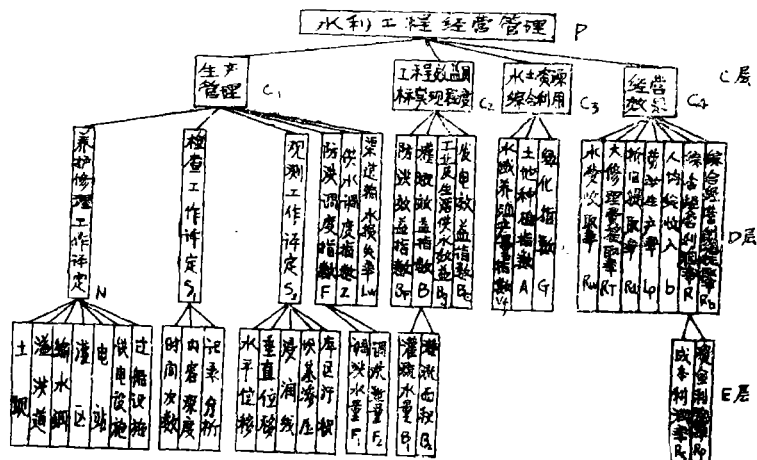 水利工程经营管理 P
生产管理 C1
工程效益目标实现程度 C2
水土资源综合利用 C3
经营效果 C4
C层
养护修理工作评定 N
检查工作评定 S1
观测工作评定 S2
防洪调度指数 F
供水调度指数 Z
渠道输水损失率 Lw
防洪效益指数 BF
灌溉效益指数 B
工业及生活供水效益 B
发电效益指数 B
水域养殖产量指数
土地种植指数 A
绿化指数 G
水费收取率 Rw
大修理费提取率 RT
折旧提取率 Rd
劳动生产率 Lp
人均纯收入 b
综合经营利润提取率 Rb
D层
土坝
溢洪道
输水洞
灌区
电站
供电设施
过船设施
时间次数
内容深度
记录分析
水平位移
垂直位移
浸润线
坝基渗压
库区行
洪水量 F1
调洪 量 F2
灌溉水量 B1
灌溉面积 B2
成本利润率
资金利润率 Rp
E层